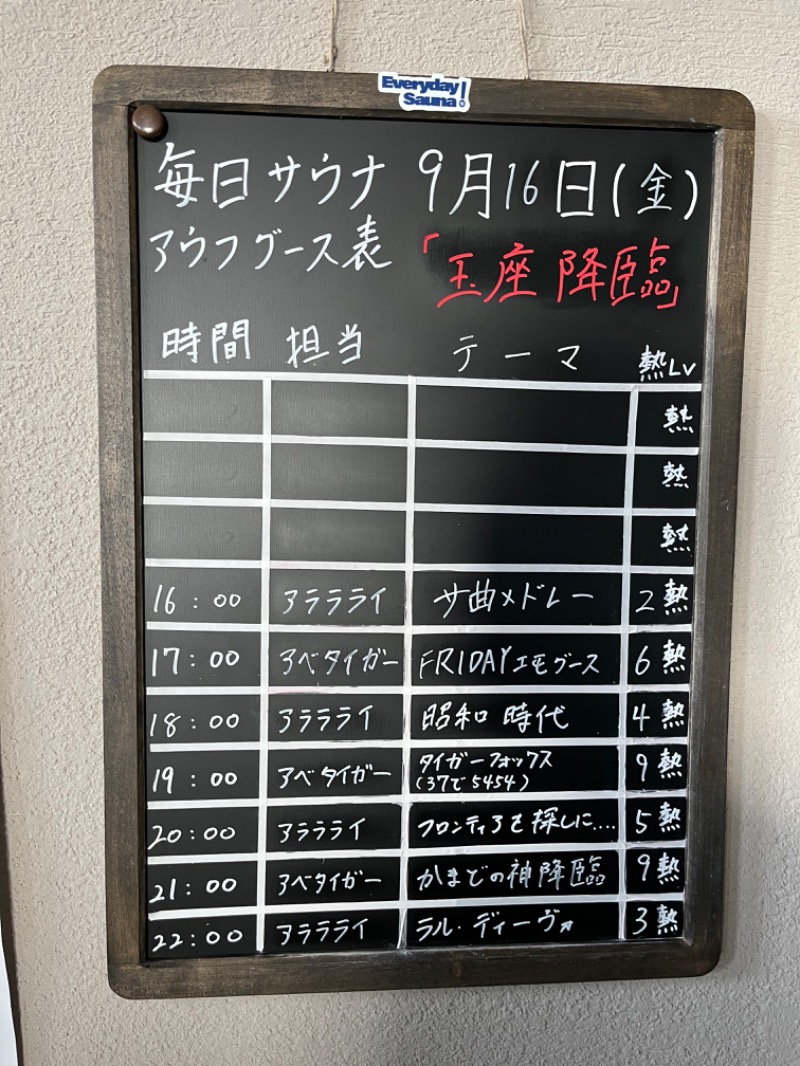 Everyday Sauna!
毎日サウナ 9月16日(金)
アウフグース表 「玉座降臨」
時間 担当 テーマ 熱Lv
熱
熱
熱
16:00 アラララライ サ曲メドレー 2熱
17:00 アベタイガー FRIDAYエモグース 6熱
18:00 アララライ 昭和時代 4熱
19:00 アベタイガー タイガーフォックス (37で5454) 9熱
20:00 アララライ フロンティアを探しに.... 5熱
21:00 アベタイガー かまどの神降臨 9熱
22:00 アララライ ラル・ディーヴァ 3熱